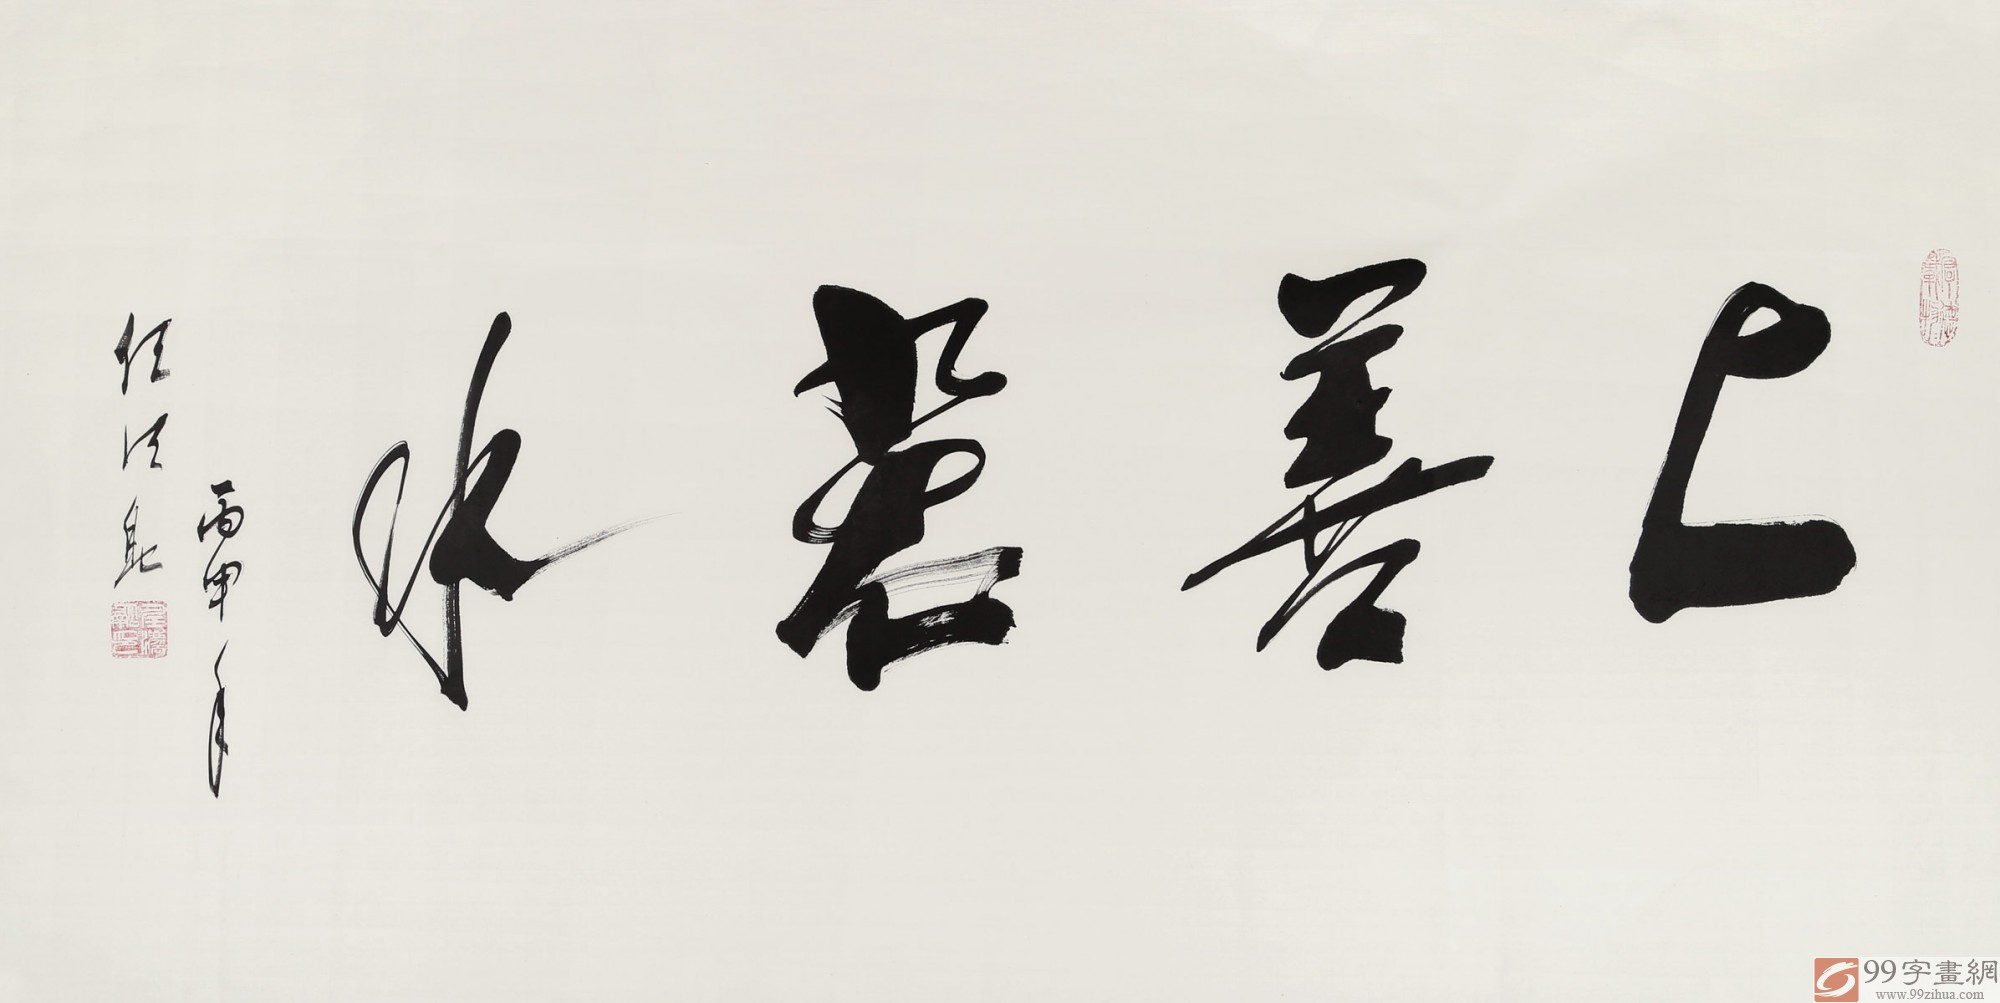 上善若水
丙申年
任法融
99字畫網
www.99zihua.com